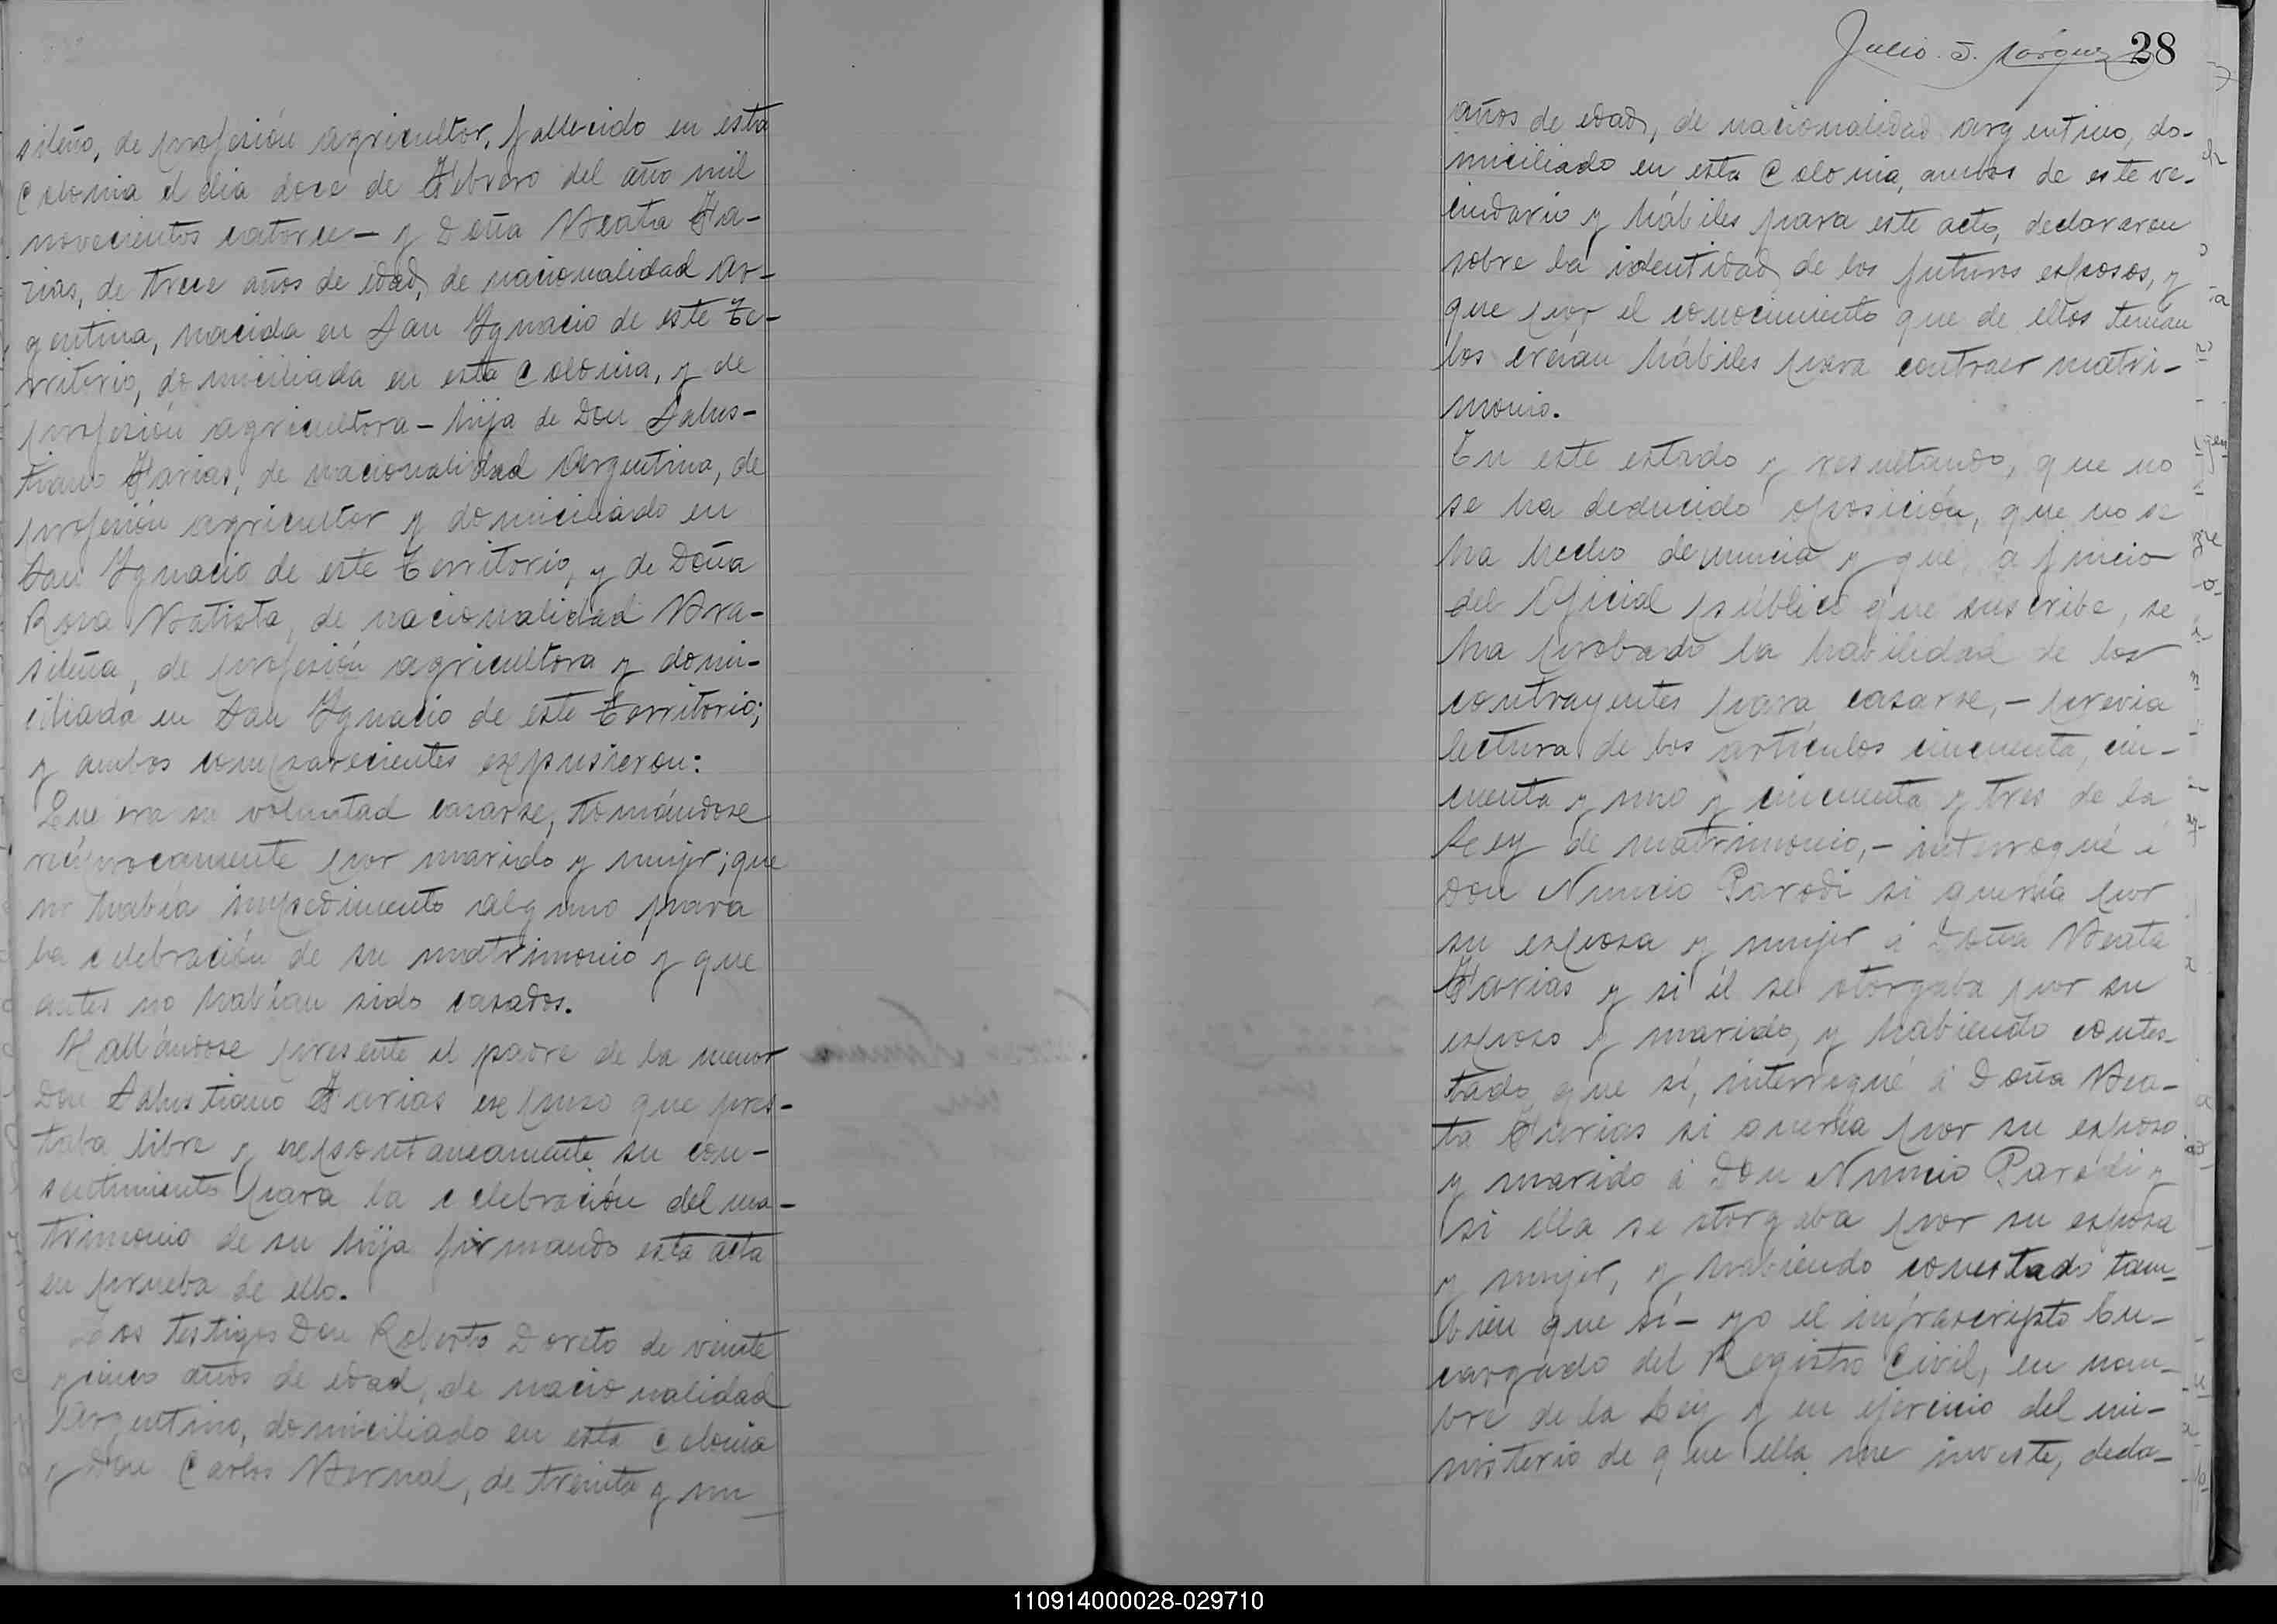 sileño, de profesión agricultor, fallecido en esta
Colonia el dia doce de Febrero del año mil
novecientos catorce - y Doña Beata Fa-
rias, de trece años de edad, de nacionalidad Ar-
gentina, nacida en San Ygnacio de este Te-
rritorio, domiciliada en esta Colonia, y de
profesión agricultora - hija de Don Salus-
tiano Farias, de nacionalidad Argentina, de
profesión agricultor y domiciliado en
San Ygnacio de este Territorio, y de Doña
Rosa Batista, de nacionalidad Bra-
sileña, de profesión agricultora y domi-
ciliada en San Ygnacio de este Territorio;
y ambos comparecientes expusieron:
Que era su voluntad casarse, tomándose
recíprocamente por marido y mujer; que
no había impedimento alguno para
la celebración de su matrimonio y que
antes no habían sido casados.
Hallándose presente el padre de la menor
Don Salustiano Farias expuso que pres-
taba libre y expontaneamente su con-
sentimiento para la celebración del ma-
trimonio de su hija firmando esta acta
en prueba de ello.
Los testigos Don Roberto Doreto de veinte
y cinco años de edad, de nacionalidad
Argentino, domiciliado en esta Colonia
y Don Carlos Bernal, de treinta y un
Julio 28
años de edad, de nacionalidad argentino, do-
miciliado en esta Colonia, ambos de este ve-
cindario y hábiles para este acto, declararon
sobre la identidad de los futuros esposos, y
que por el conocimiento que de ellos tenían
los creían hábiles para contraer matri-
monio.
En este estado y resultando, que no
se ha deducido oposición, que no se
ha hecho denuncia y que, a juicio
del Oficial público que suscribe, se
ha probado la habilidad de los
contrayentes para casarse, - previa
lectura de los artículos cincuenta, cin-
cuenta y uno y cincuenta y tres de la
Ley de matrimonio, - interrogué á
Don Nuncio Parodi si quería por
su esposa y mujer á Doña Beata
Farias y si él se otorgaba por su
esposo y marido, y habiendo contes-
tado que sí, interrogué á Doña Bea-
ta Farias si quería por su esposo
y marido á Don Nuncio Parodi y
si ella se otorgaba por su esposa
y mujer, y habiendo contestado tam-
bien que sí - yo el infrascripto En-
cargado del Registro Civil, en nom-
bre de la Ley y en ejercicio del mi-
nisterio de que ella me inviste, decla-
110914000028-029710